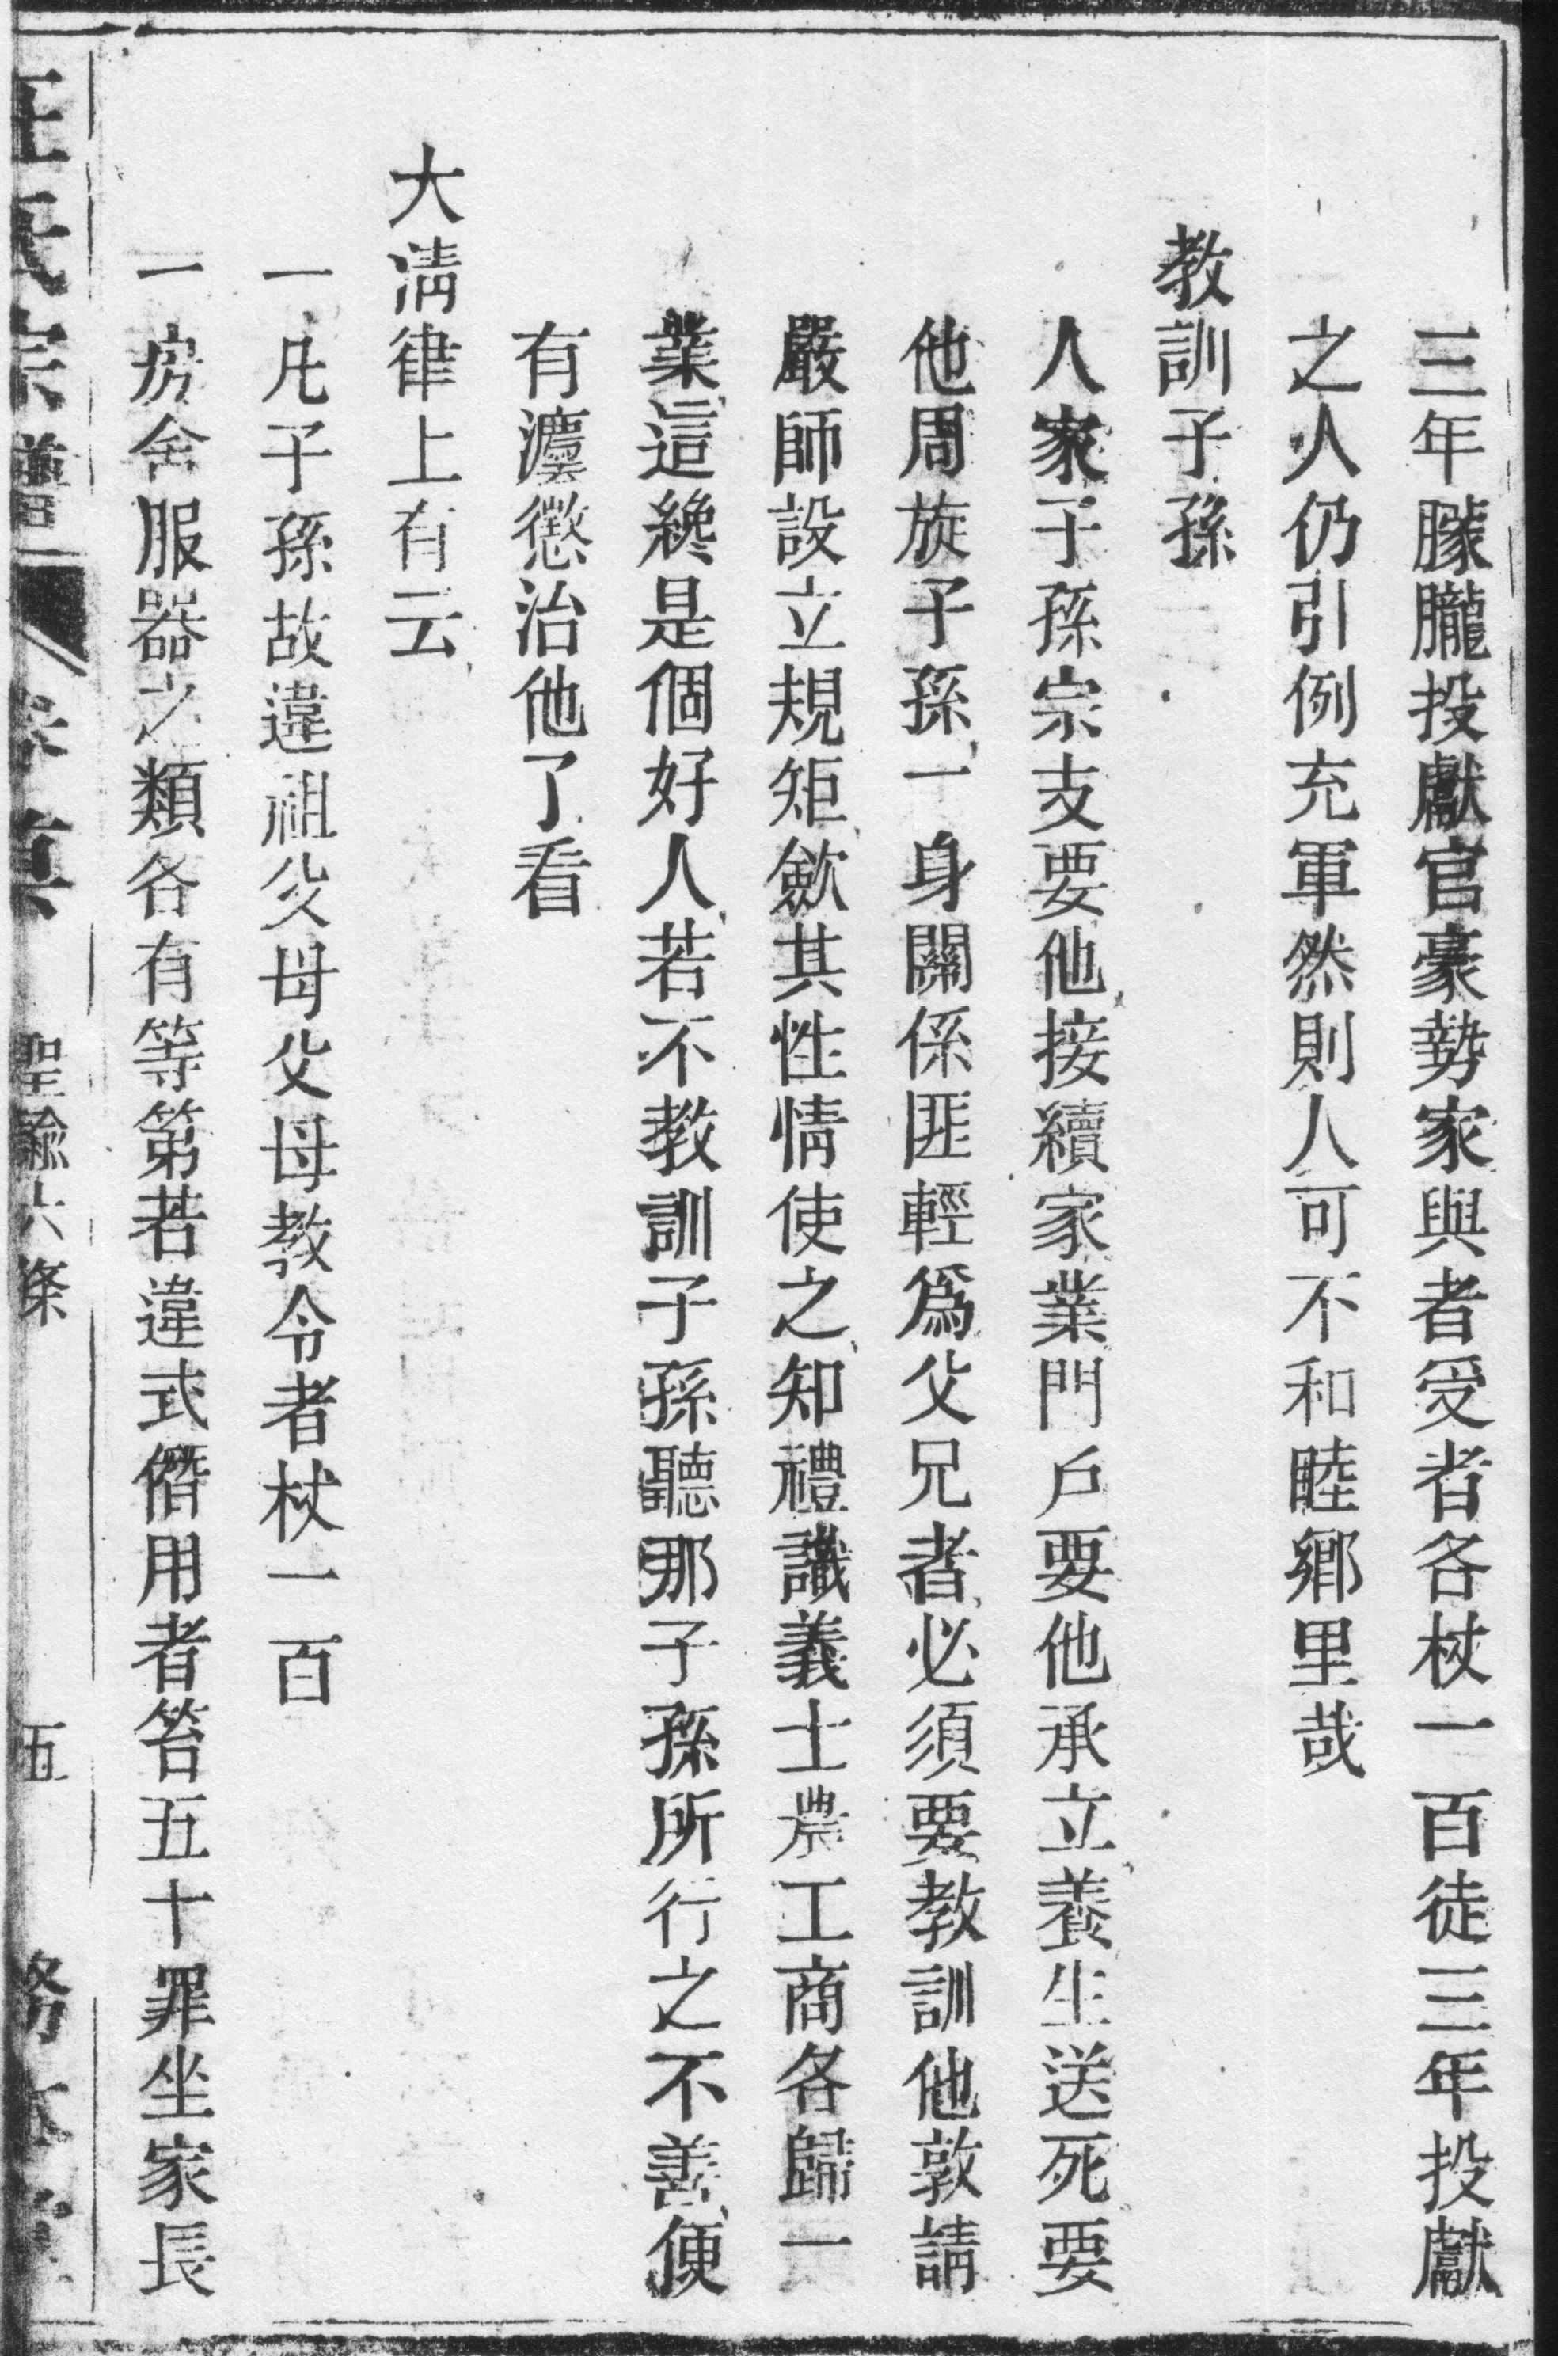 三年朦朧投獻官豪勢家與者受者各杖一百徒三年投獻
之人仍引例充軍然則人可不和睦鄉里哉
教訓子孫
人家子孫宗支要他接續家業門戶要他承立養生送死要
他周旋子孫一身關係匪輕爲父兄者必須要教訓他敦請
嚴師設立規矩歛其性情使之知禮識義士農工商各歸一
業這纔是個好人若不教訓子孫聽那子孫所行之不善便
有灋懲治他了看
大清律上有云
一凡子孫故違祖父母父母教令者杖一百
一房舍服器之類各有等第若違式僭用者笞五十罪坐家長
氏宗譜 聖諭六條 五